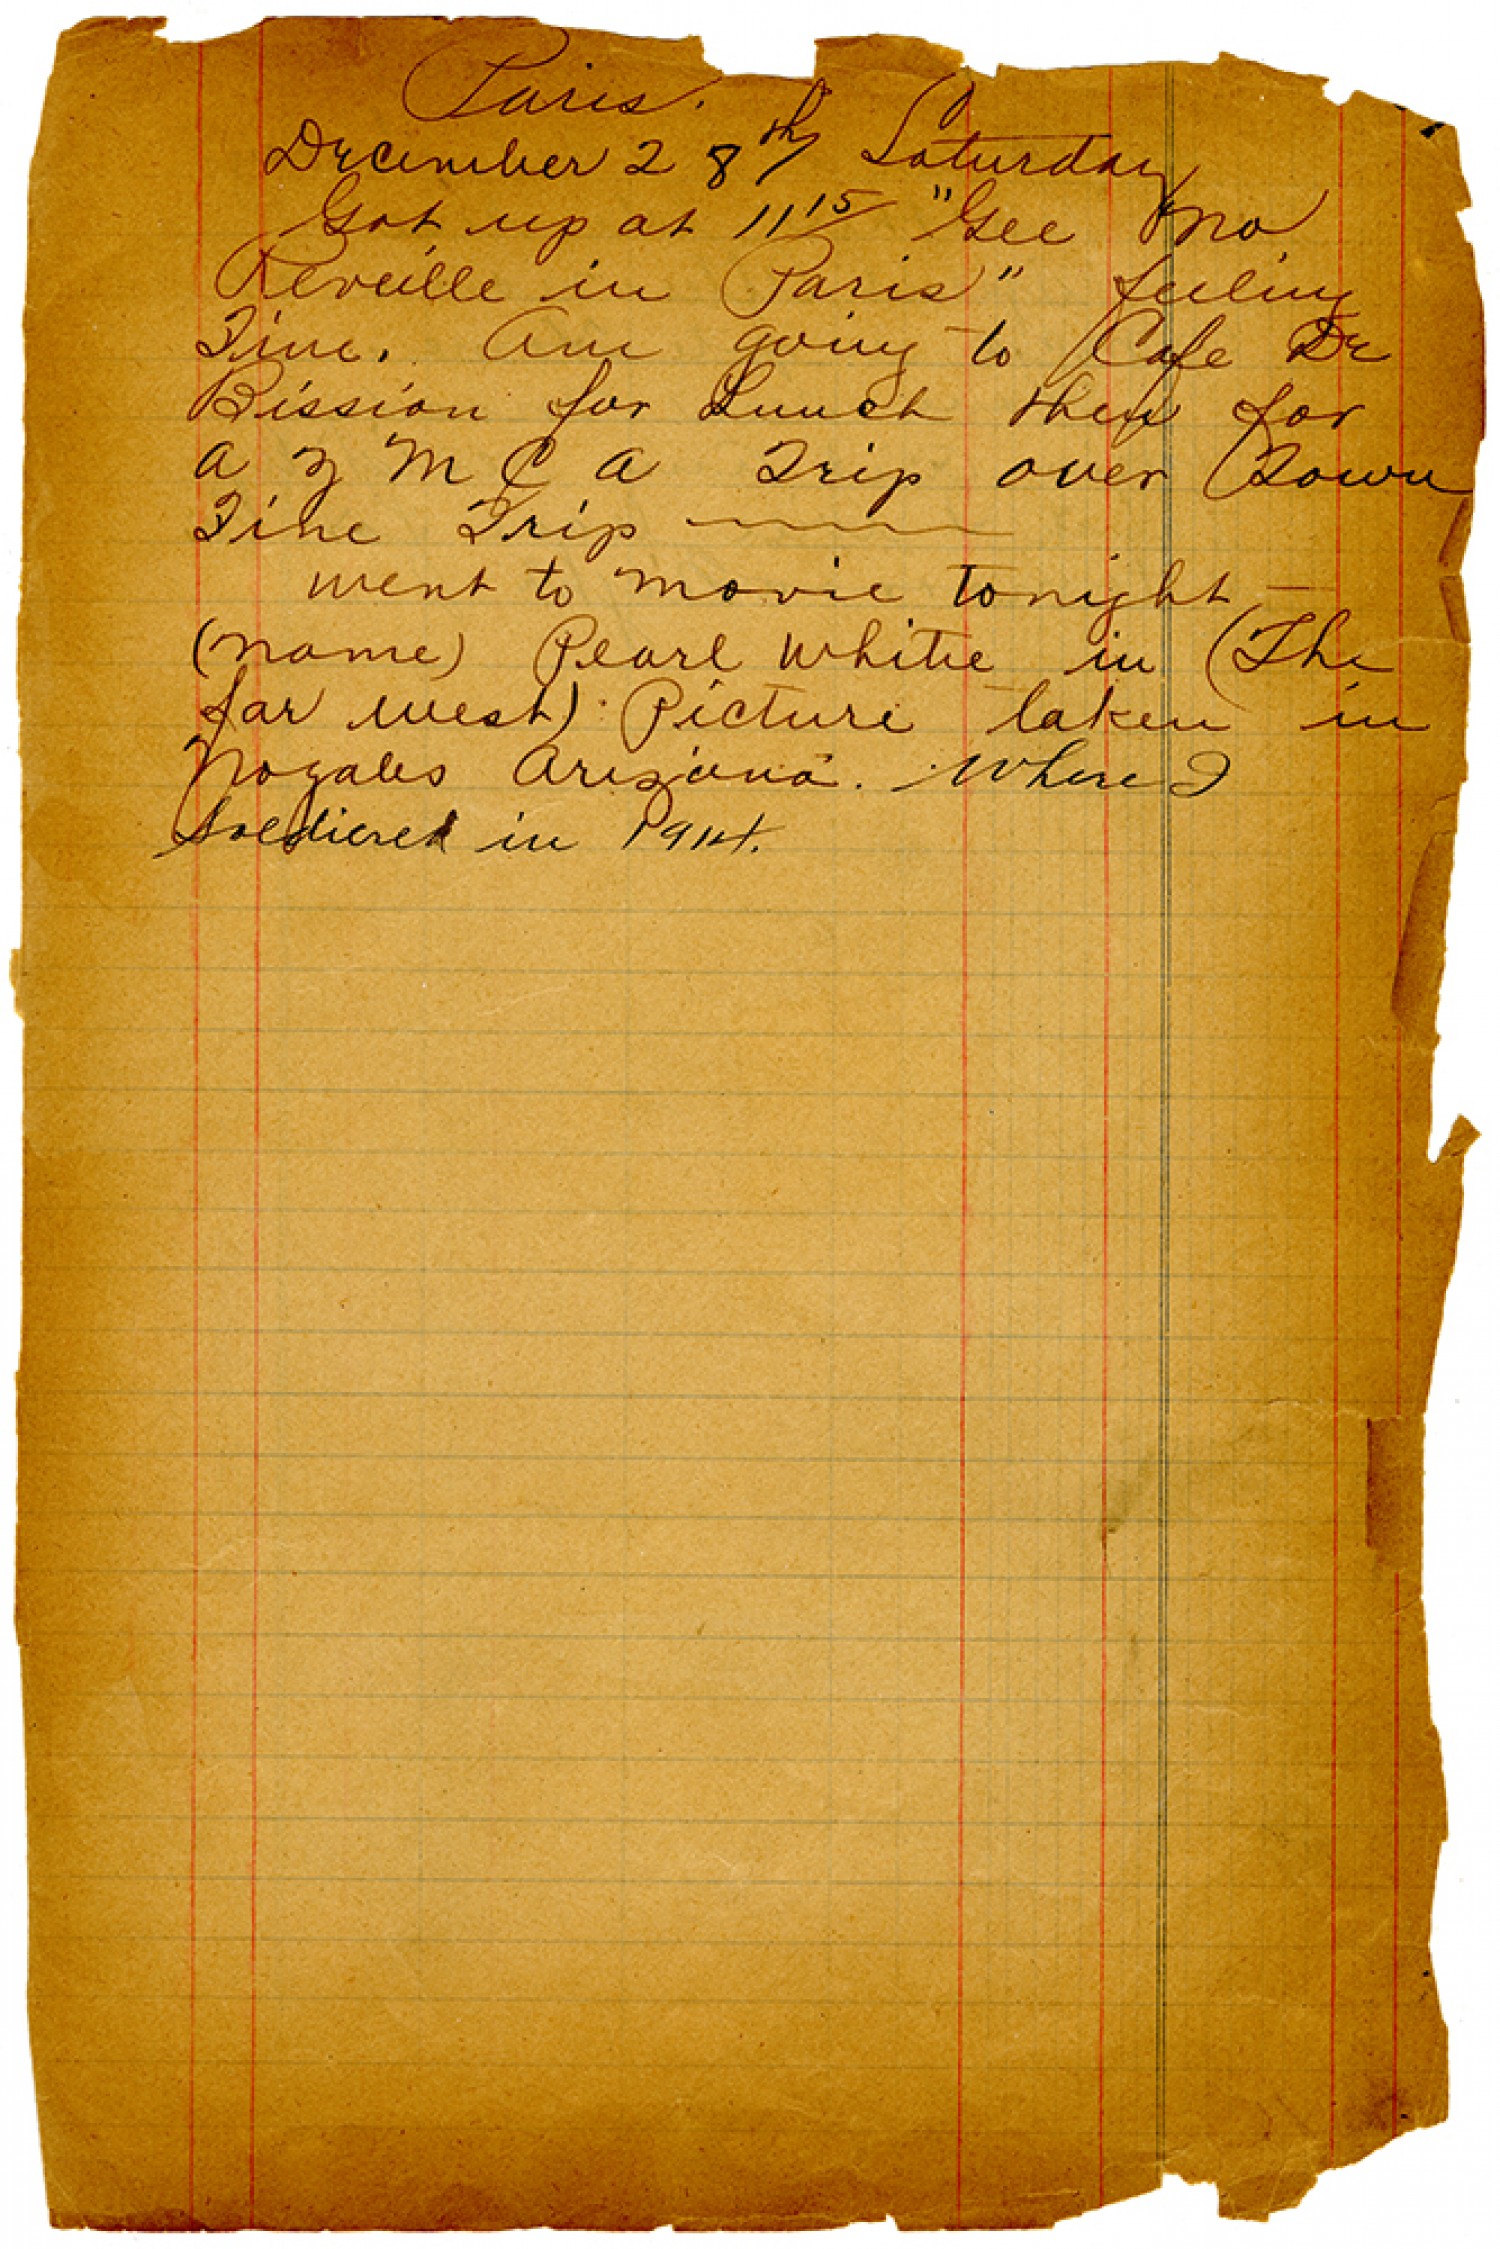 Paris.
December 28th Saturday
Got up at 11 15 "Gee no
Reveille in Paris" feeling
Fine. Am going to Cafe De
Bission for Lunch then for
a Y M C A Trip over Town
Fine Trip
went to movie tonight —
(name) Pearl White in (The
far west) Picture taken in
Nogales Arizona. Where I
Soldiered in 1914.